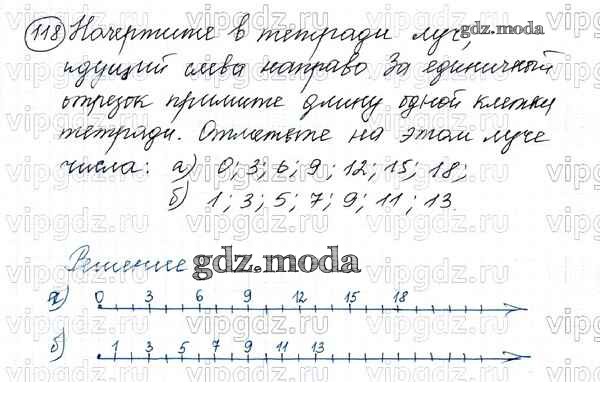 118 Начертите в тетради луч,
идущий слева направо За единичный
отрезок примите длину одной клетки
тетради. Отметьте на этом луче
числа: а) 0; 3; 6; 9; 12; 15; 18;
б) 1; 3; 5; 7; 9; 11; 13.
Решение
а) 0 3 6 9 12 15 18
б) 1 3 5 7 9 11 13
gdz.moda
gdz.moda
vipgdz.ru